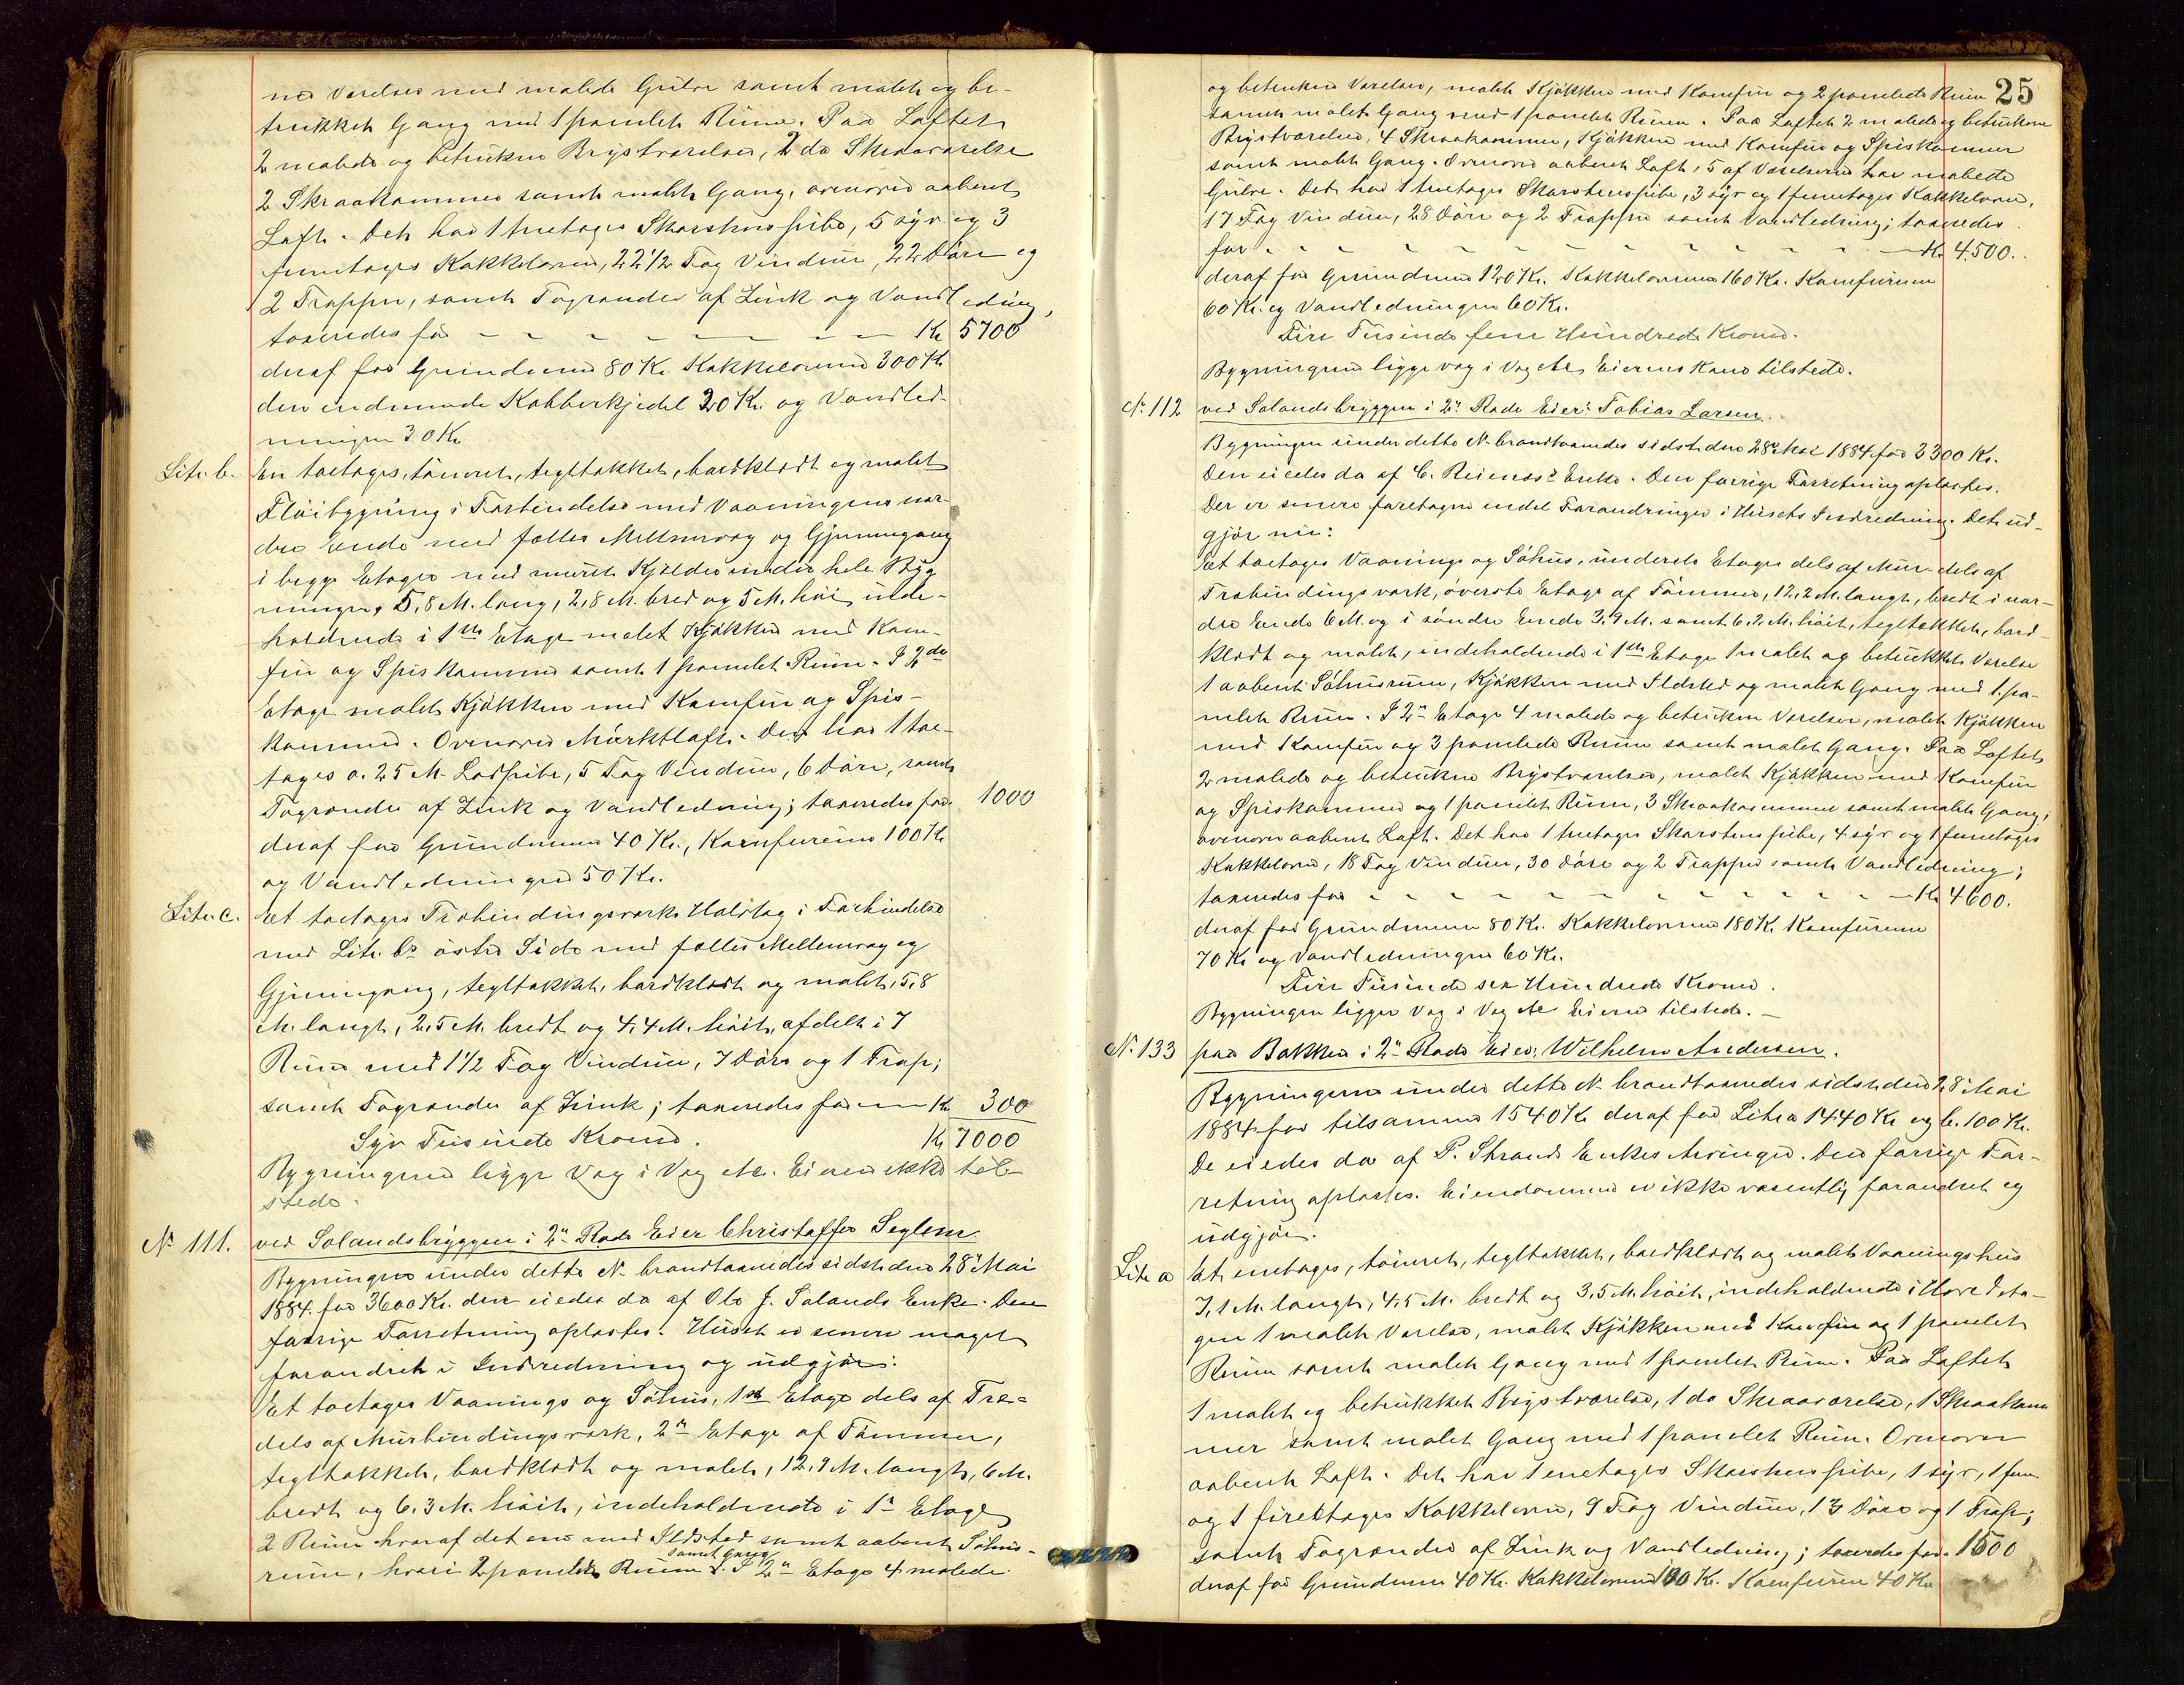 ne Værelser med malede Gulve samt malet og be-
trukket Gang med 1 panelet Rum. Paa Loftet
2 malede og betrukne Brystværelser, 2 do Skraaværelse
2 Skraakammer samt malet Gang, ovenover aabent
Loft. Det har 1 toetages Skorstenspibe, 5 syv og 3
femetages Kakkelovne, 22 1/2 Fag Vinduer, 22 Døre og
2 Trapper, samt Tagrender af Zink og Vandledning,
taxeredes for - - - - - Kr 5700
deraf for Grundmur 80 Kr Kakkelovnene 300 Kr
den indmurede Kobberkjedel 20 Kr. og Vandled-
ningen 30 Kr
Litr. b. En toetages, tømret, tegltækket, bordklædt og malet
Fløibygning i Forbindelse med Vaaningens nor-
dre Ende med fælles Mellemvæg og Gjennemgang
i begge Etager med muret Kjælder under hele Byg
ningen, 5,8 M. lang, 2,8 M. bred og 5 M. høi, inde-
holdende i 1ste Etage malet Kjøkken med Kom-
fur og Spiskammer samt 1 panelet Rum. I 2den
Etage malet Kjøkken med Komfur og Spis-
kammer. Ovenover Mørktloft. Det har 1 toe-
tages o. 25 M. Lodpibe, 5 Fag Vinduer, 6 Døre, samt
Tagrender af Zink og Vandledning; taxeredes for 1000
deraf for Grundmuren 40 Kr., Komfurerne 100 Kr
og Vandledningen 50 Kr.
Litr. c. Et toetages Træbindingsværks Halvtag i Forbindelse
med Litr. bs østre Side med fælles Mellemvæg og
Gjennemgang, tegltækket, bordklædt og malet, 5,8
M. langt, 2,5 M. bredt og 4,4 M. høit, afdelt i 7
Rum med 1 1/2 Fag Vinduer, 7 Døre og 1 Trap;
samt Tagrender af Zink; taxeredes for — Kr 300
Syv Tusinde Kroner. Kr 7000
Bygningerne ligge Væg i Væg etc. Eieren ikke til-
stede.
No 111. ved Sølandsbryggen i 2n Rode Eier Christoffer Seglem
Bygningen under dette No brandtaxeredes sidst den 28 Mai
1884 for 3600 Kr. den eiedes da af Ole J. Sølands Enke. Den
forrige Forretning oplæstes. Huset er senere meget
forandret i Indredning og udgjør:
Et toetages Vaanings og Søhus, 1ste Etage dels af Træ-
dels af Murbindingsværk, 2n Etage af Tømmer,
tegltækket, bordklædt og malet, 12,9 M. langt, 6 M.
bredt og 6,3 M. høit, indeholdende i 1ste Etage
2 Rum hvoraf det ene med Ildsted samt aabent Søhus-
rum, hvori 2 panelede Rum samt Gang. I 2n Etage 4 malede
25
og betrukne Værelser, malet Kjøkken med Komfur og 2 panelede Rum
samt malet Gang med 1 panelet Rum. Paa Loftet 2 malede og betrukne
Brystværelser, 4 Skraakammer, Kjøkken med Komfur og Spiskammer
samt malet Gang. Ovenover aabent Loft, 5 af Værelserne har malede
Gulve. Det har 1 toetages Skorstenspibe, 3 syv og 1 femetages Kakkelovne,
17 Fag Vinduer, 28 Døre og 2 Trapper samt Vandledning; taxeredes
for - - - - - Kr 4500.
deraf for Grundmur 120 Kr. Kakkelovnene 160 Kr. Komfurerne
60 Kr. og Vandledningen 60 Kr.
Fire Tusinde fem Hundrede Kroner.
Bygningerne ligge Væg i Væg etc. Eierens Kone tilstede.
No 112 ved Sølandsbryggen i 2n Rode Eier: Tobias Larsen.
Bygningen under dette No brandtaxeredes sidst den 28 Mai 1884 for 3300 Kr.
Den eiedes da af C. Reiers Enke. Den forrige Forretning oplæstes.
Der er senere foretagne endel Forandringer i Husets Indredning. Det ud-
gjør nu:
Et toetages Vaanings og Søhus, underste Etage dels af Mur- dels af
Træbindingsværk, øverste Etage af Tømmer, 12,2 M. langt, bredt i nor-
dre Ende 6 M. og i søndre Ende 3,9 M. samt 6,2 M. høit, tegltækket, bord-
klædt og malet, indeholdende i 1ste Etage 1 malet og betrukket Værelse
1 aabent Søhusrum, Kjøkken med Ildsted og malet Gang med 1 pa-
nelet Rum. I 2n Etage 4 malede og betrukne Værelser, malet Kjøkken
med Komfur og 3 panelede Rum samt malet Gang. Paa Loftet
2 malede og betrukne Brystværelser, malet Kjøkken med Komfur
og Spiskammer og 1 panelet Rum, 3 Skraakammer samt malet Gang;
ovenover aabent Loft. Det har 1 toetages Skorstenspibe, 4 syv og 1 femetages
Kakkelovne, 18 Fag Vinduer, 30 Døre og 2 Trapper samt Vandledning;
taxeredes for - - - - - Kr 4600.
deraf for Grundmuren 80 Kr. Kakkelovnene 180 Kr. Komfurerne
70 Kr. og Vandledningen 60 Kr.
Fire Tusinde sex Hundrede Kroner.
Bygningen ligger Væg i Væg etc Eieren tilstede. —
No 133 paa Bakken i 2n Rode Eier: Wilhelm Andersen.
Bygningerne under dette No brandtaxeredes sidst den 28 Mai
1884 for tilsammen 1540 Kr deraf for Litr a 1440 Kr og b. 100 Kr.
De eiedes da af P. Strands Enkes Arvinger. Den forrige For-
retning oplæstes. Eiendommen er ikke væsentlig forandret og
udgjør.
Litr a Et enetages, tømret, tegltækket, bordklædt og malet Vaaningshus
7,1 M. langt, 4,5 M. bredt og 3,5 M. høit, indeholdende i Hovedeta-
gen 1 malet Værelse, malet Kjøkken med Komfur og 1 panelet
Rum samt malet Gang med 1 panelet Rum. Paa Loftet
1 malet og betrukket Brystværelse, 1 do Skraaværelse, 1 Skraakam
mer samt malet Gang med 1 panelet Rum. Ovenover
aabent Loft. Det har 1 enetages Skorstenspibe, 1 syv, 1 fem
og 1 fireetages Kakkelovne, 9 Fag Vinduer, 13 Døre og 1 Trap;
samt Tagrender af Zink og Vandledning; taxeredes for 1500
deraf for Grundmuren 40 Kr. Kakkelovnene 100 Kr. Komfuren 40 Kr